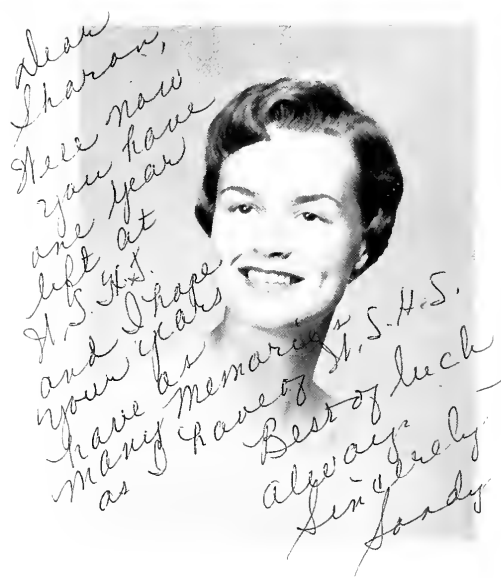 Dear
Sharon,
Well now
you have
one year
left at
N.S.H.S.
and I hope
your years
have as
many memories
as I have of N.S.H.S.
Best of luck
always
Sincerely
Sandy